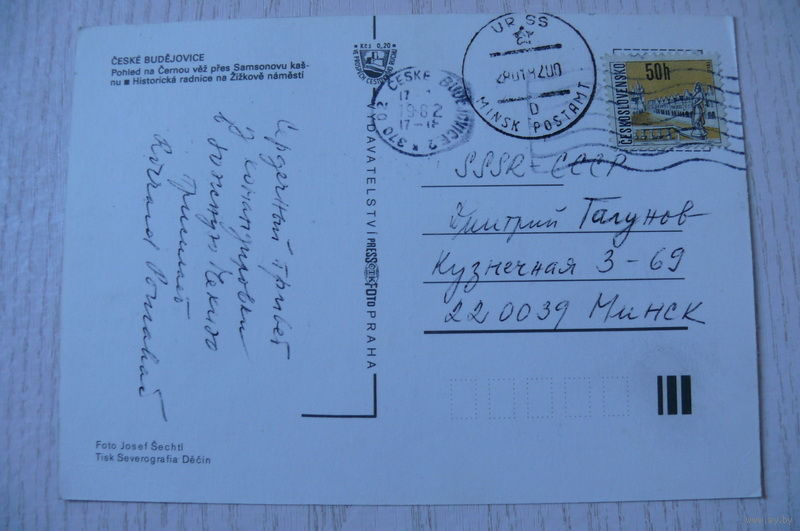 ČESKÉ BUDĚJOVICE
Pohled na Černou věž přes Samsonovu kaš-
nu ■ Historická radnice na Žižkově náměstí
Сердечный привет
из командировки
в
Присылает
Foto Josef Šechtl
Tisk Severografia Děčín
Kčs 0,20
VYDAVATELSTVÍ PRESSFOTO PRAHA
ČESKÉ BUDĚJOVICE 2
370
17-18
URSS
MINSK POSTAMT
D
50h
ČESKOSLOVENSKO
SSSR - СССР
Дмитрий Галунов
Кузнечная 3-69
220039 Минск